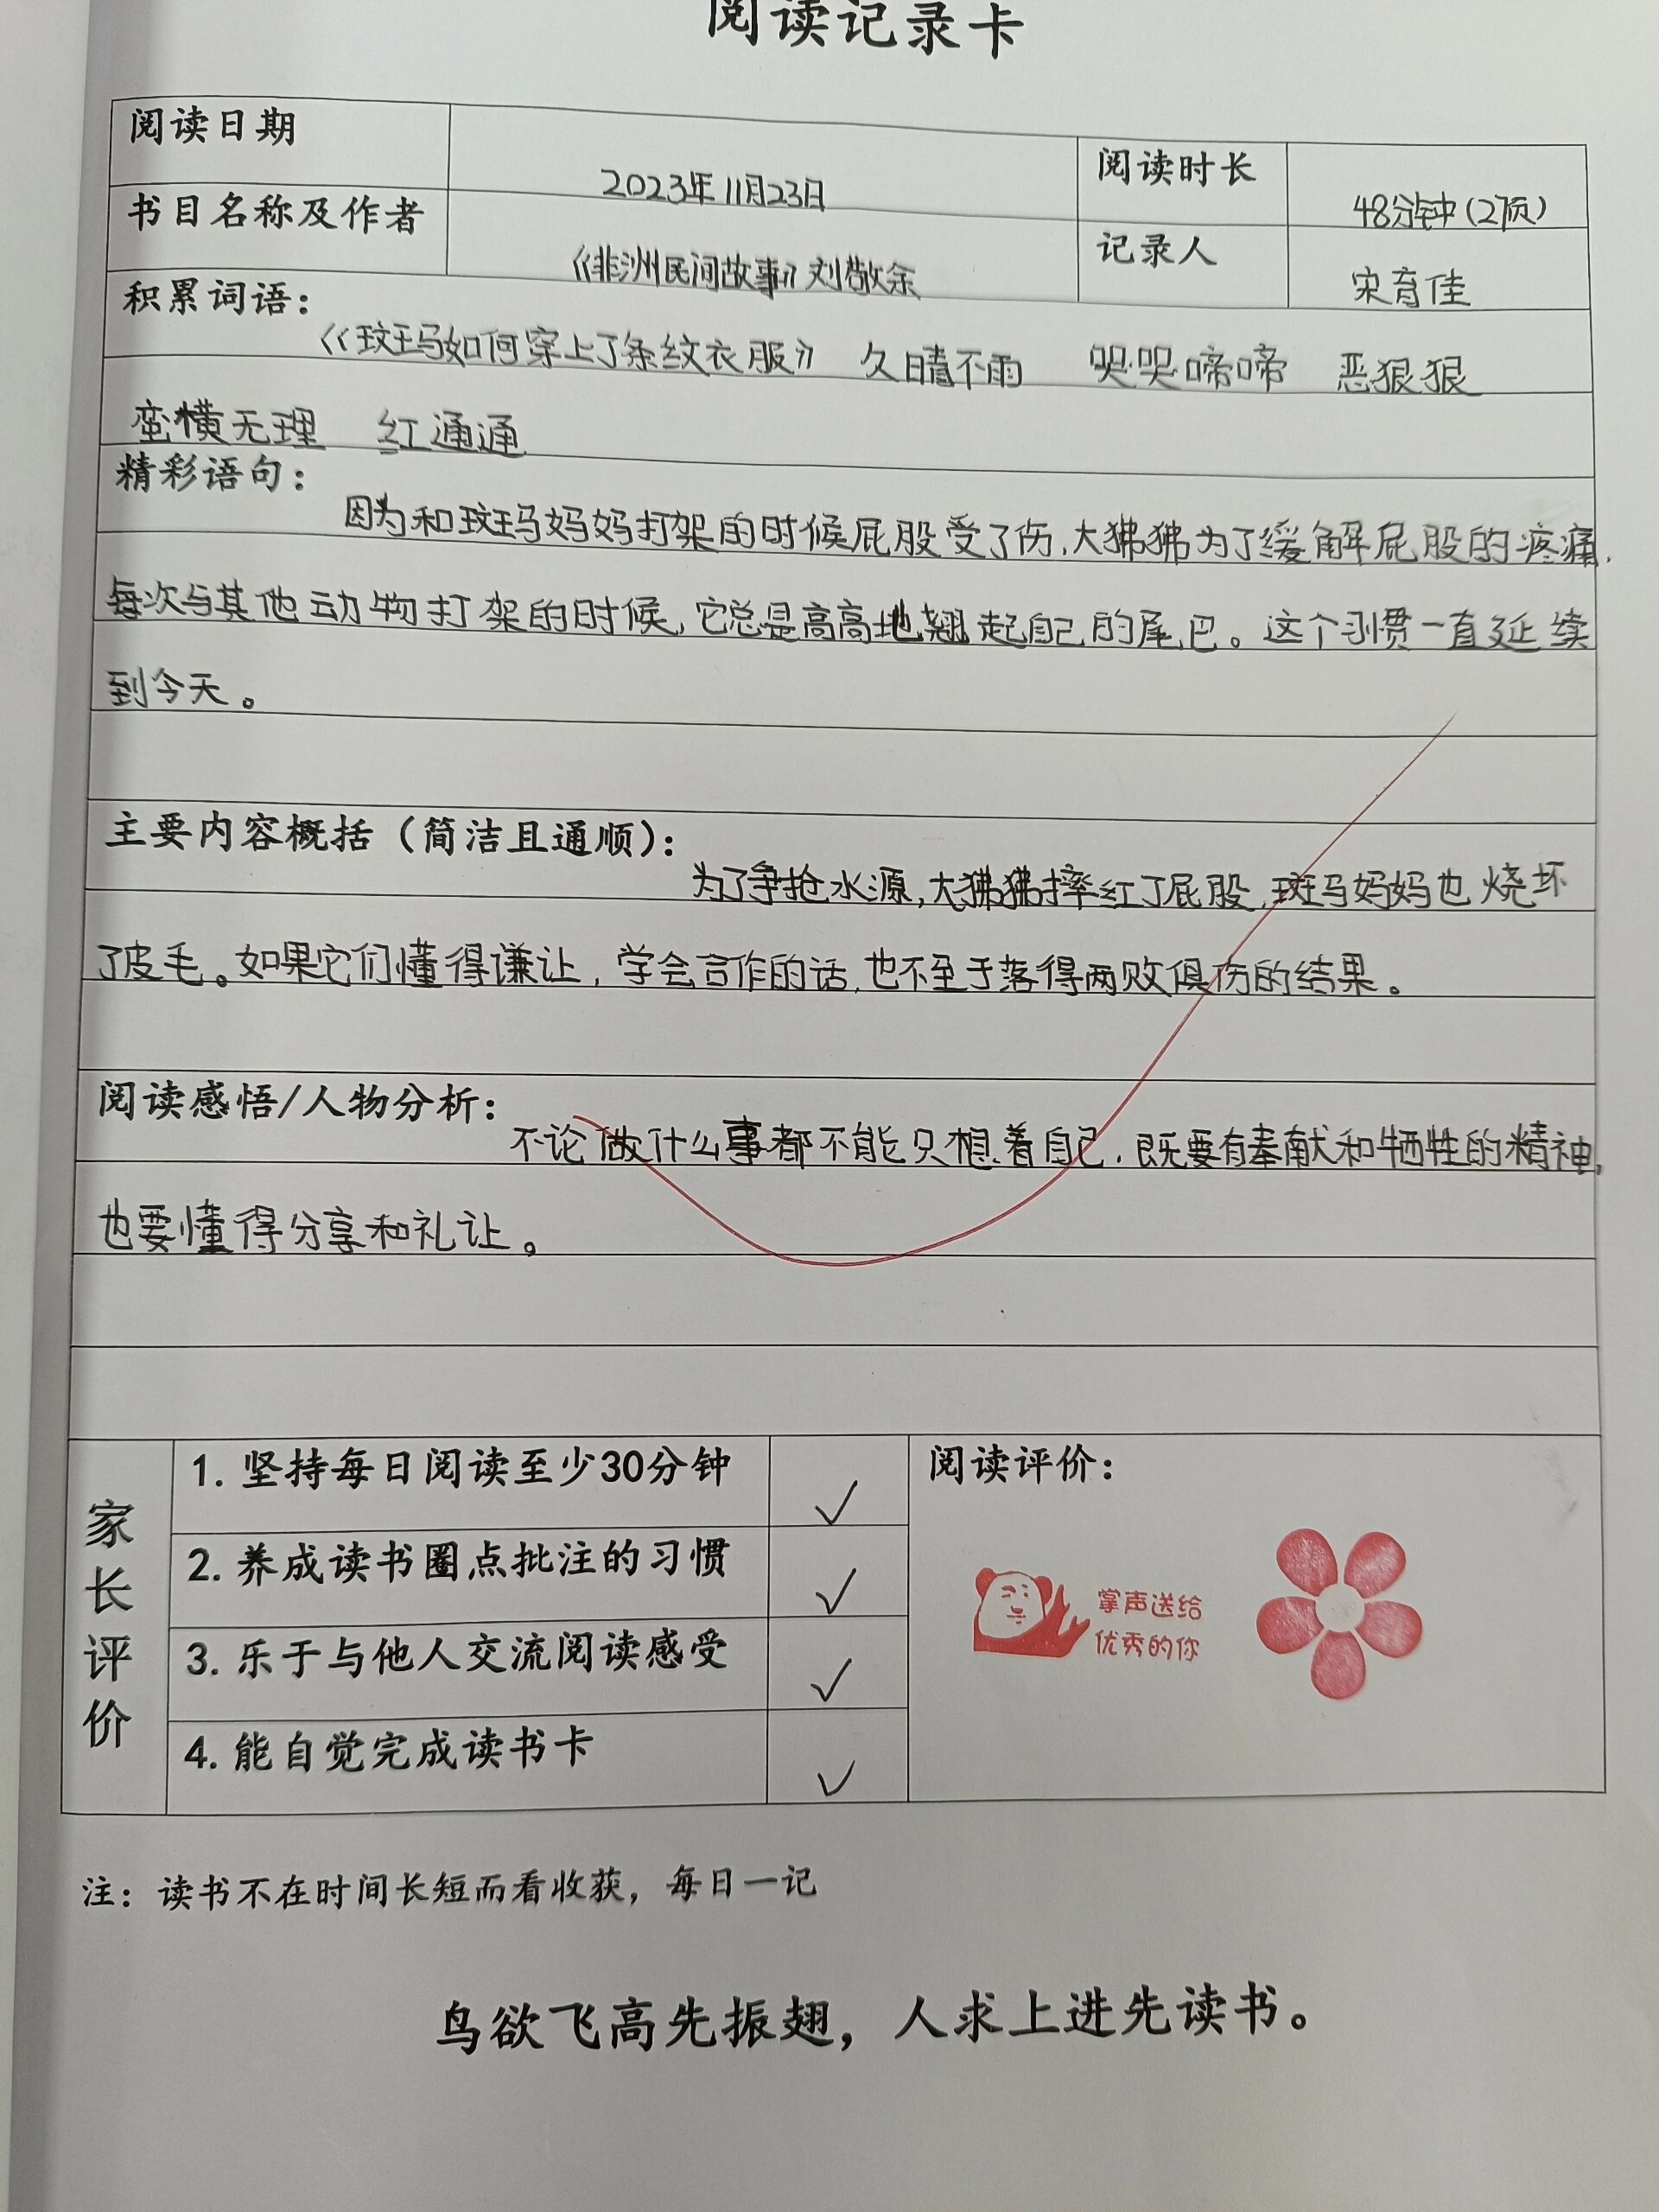 阅读记录卡
阅读日期 2023年11月23日 阅读时长 48分钟(27页)
书目名称及作者 《非洲民间故事》刘敬余 记录人 宋育佳
积累词语：《斑马如何穿上了条纹衣服》 久晴不雨 哭哭啼啼 恶狠狠
蛮横无理 红通通
精彩语句：因为和斑马妈妈打架的时候屁股受了伤，大狒狒为了缓解屁股的疼痛，
每次与其他动物打架的时候，它总是高高地翘起自己的尾巴。这个习惯一直延续
到今天。
主要内容概括（简洁且通顺）：为了争抢水源，大狒狒摔红了屁股，斑马妈妈也烧坏
了皮毛。如果它们懂得谦让，学会合作的话，也不至于落得两败俱伤的结果。
阅读感悟/人物分析：不论做什么事都不能只想着自己，既要有奉献和牺牲的精神，
也要懂得分享和礼让。
家长评价
1. 坚持每日阅读至少30分钟 ✓
2. 养成读书圈点批注的习惯 ✓
3. 乐于与他人交流阅读感受 ✓
4. 能自觉完成读书卡 ✓
阅读评价：
掌声送给
优秀的你
注：读书不在时间长短而看收获，每日一记
鸟欲飞高先振翅，人求上进先读书。